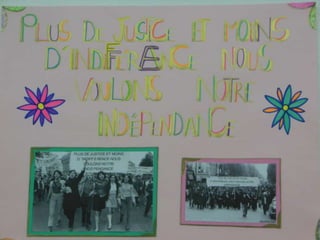 PLUS DE JUSTICE ET MOINS
D'INDIFERENCE NOUS
VOULONS NOTRE
INDÉPENDANCE
PLUS DE JUSTICE ET MOINS
NOUS
VOULONS NOTRE
INDEPENDANCE